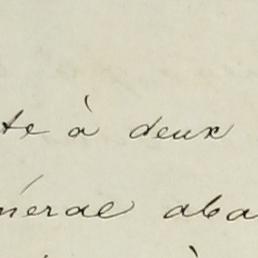 te à deux
néral aba